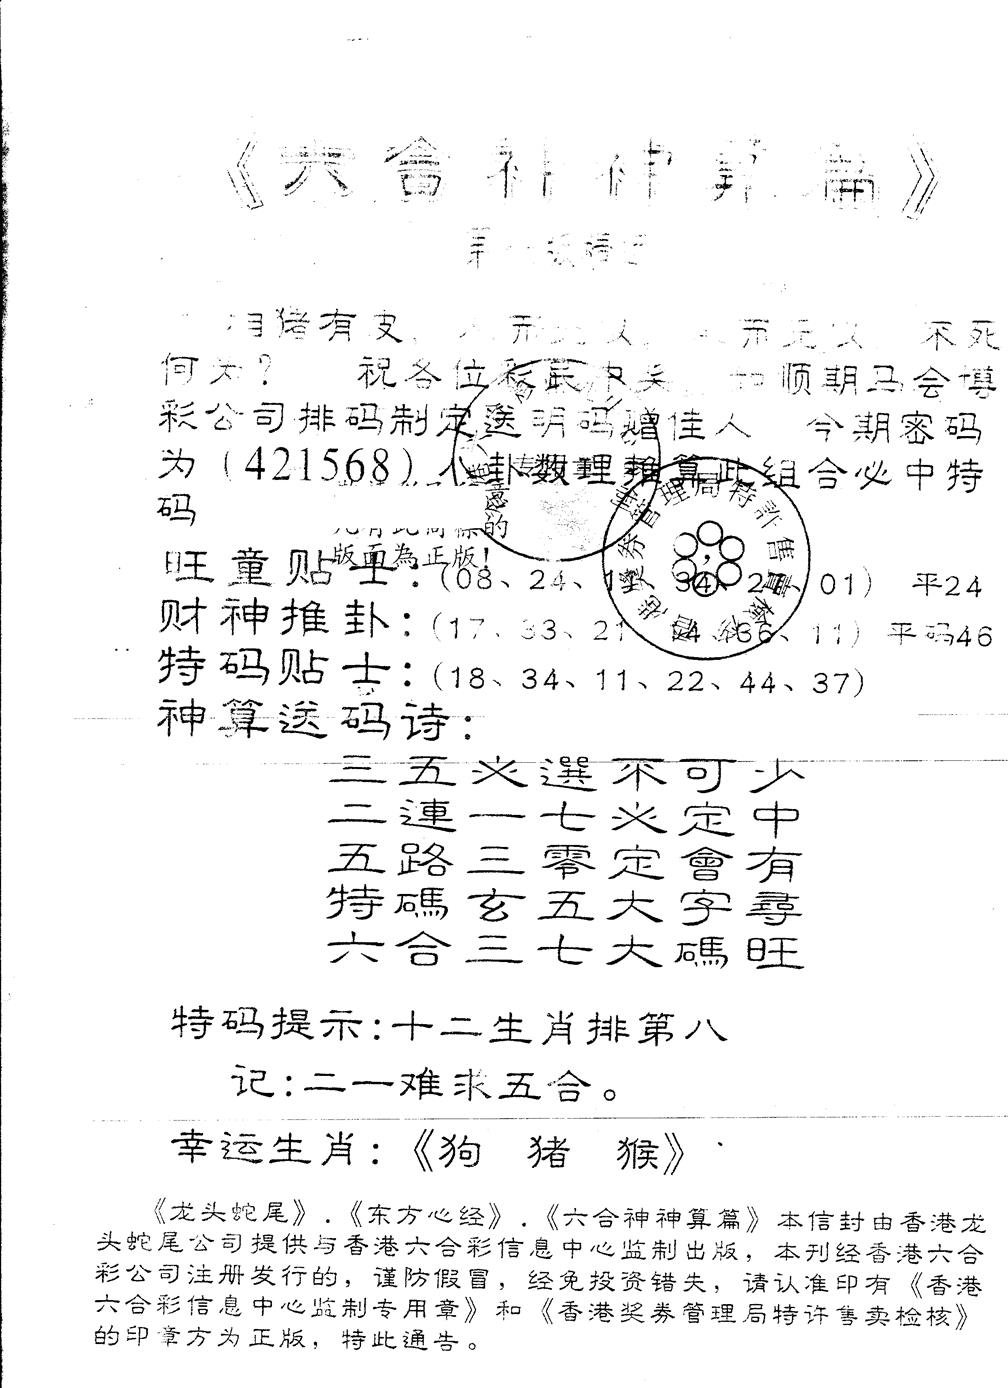 《六合神神算篇》
相猪有皮， 不死
何为？ 祝各位彩民中奖， 如顺期马会博
彩公司排码制定送明码赠佳人 今期密码
为（421568）八卦数理推算此组合必中特
码
的
版面為正版！
管理局特許售賣
旺童贴士：（08、24、 34、 01） 平24
财神推卦：（17、33、21 36、11）平码46
特码贴士：（18、34、11、22、44、37）
神算送码诗：
三五必選不可少
二連一七必定中
五路三零定會有
特碼玄五大字尋
六合三七大碼旺
特码提示：十二生肖排第八
记：二一难求五合。
幸运生肖：《狗 猪 猴》
《龙头蛇尾》．《东方心经》．《六合神神算篇》本信封由香港龙
头蛇尾公司提供与香港六合彩信息中心监制出版，本刊经香港六合
彩公司注册发行的，谨防假冒，经免投资错失，请认准印有《香港
六合彩信息中心监制专用章》和《香港奖券管理局特许售卖检核》
的印章方为正版，特此通告。